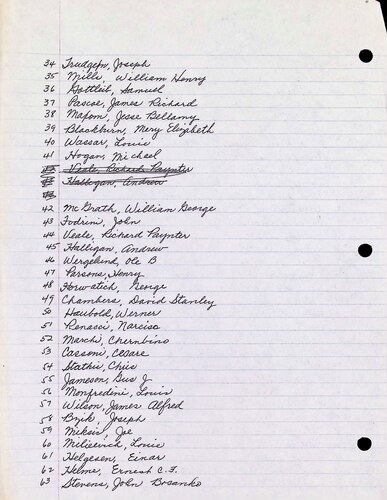 34 Trudgen, Joseph
35 Mills, William Henry
36 Gottlieb, Samuel
37 Pascoe, James Richard
38 Jesse Bellamy
39 Blackburn, Mery Elizabeth
40 Wassar, Louis
41 Hogan, Micheel
42 Veale, Richard Paynter
43 Halligan, Andrew
42 McGrath, William George
43 Fodrini, John
44 Veale, Richard Paynter
45 Halligan, Andrew
46 Wergeland, Ole B
47 Parsons, Henry
48 Horwatich, George
49 Chambers, David Stanley
50 Haubold, Werner
51 Penacci, Narciso
52 Marchi, Cherubino
53 Cassoni, Cesare
54 Stathis, Chris
55 Jameson, Gus J
56 Monfredini, Louis
57 Wilson, James Alfred
58 Joseph
59 Joe
60 Milicevich, Louis
61 Helgesen, Einar
62 Helme, Ernest C. F.
63 Stevens, John Bosanko